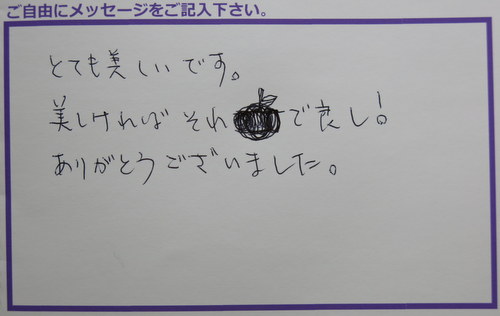 ご自由にメッセージをご記入下さい。
とても美しいです。
美しければそれで良し!
ありがとうございました。